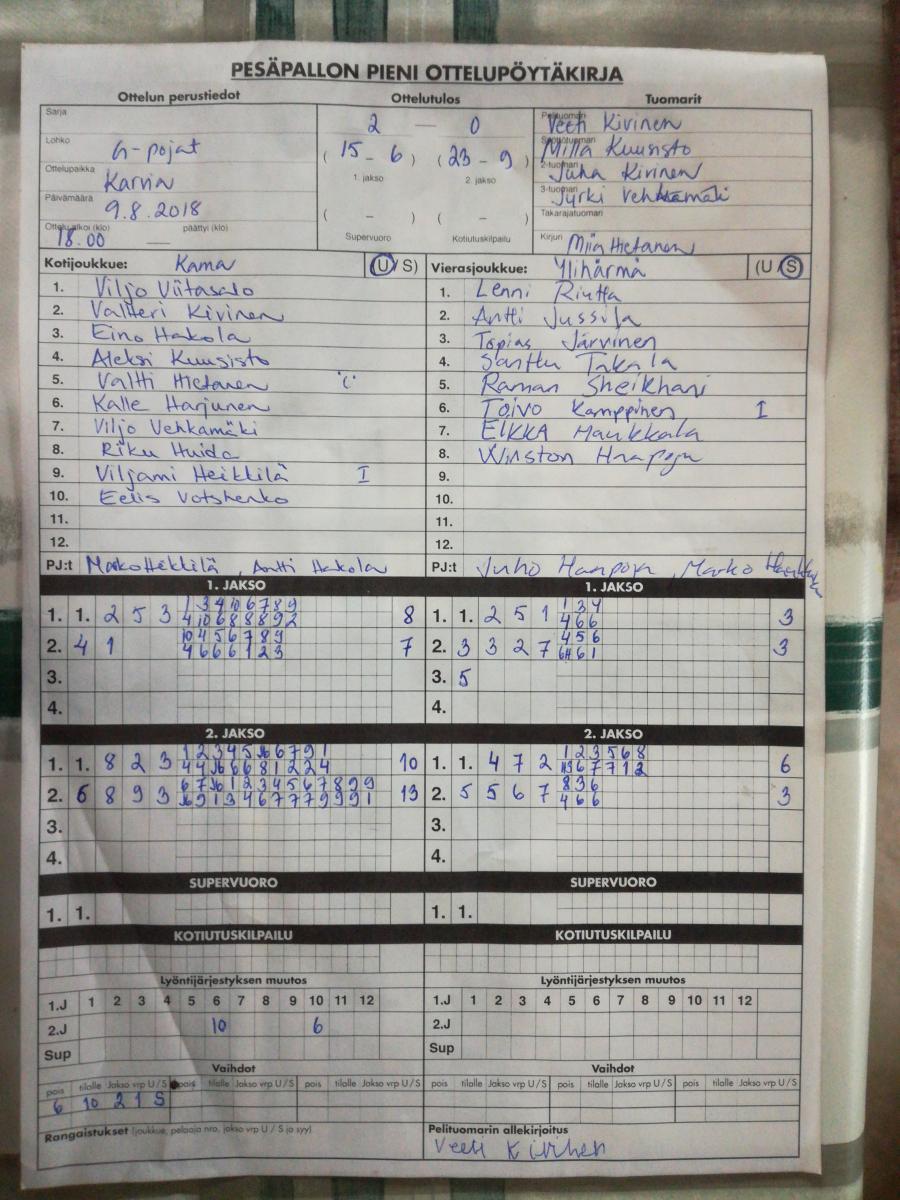 PESÄPALLON PIENI OTTELUPÖYTÄKIRJA
Ottelun perustiedot Ottelutulos Tuomarit
Sarja
Lohko G-pojat
Ottelupaikka Karvia
Päivämäärä 9.8.2018
Ottelu alkoi (klo) 18.00 päättyi (klo)
2 — 0
(15 – 6) (23 – 9)
1. jakso 2. jakso
( – ) ( – )
Supervuoro Kotiutuskilpailu
Pelituomari Veeti Kivinen
Syöttötuomari Milla Kuusisto
2-tuomari Juha Kivinen
3-tuomari Jyrki Vehkamäki
Takarajatuomari
Kirjuri Miia Hietanen
Kotijoukkue: Kama (U/S) Vierasjoukkue: Ylihärmä (U/S)
1. Viljo Viitasalo 1. Lenni Riutta
2. Valtteri Kivinen 2. Antti Jussila
3. Eino Hakola 3. Topias Järvinen
4. Aleksi Kuusisto 4. Santtu Takala
5. Valtti Hietanen 5. Raman Sheikhani
6. Kalle Harjunen 6. Toivo Kamppinen I
7. Viljo Vehkamäki 7. EIKKA Maukkala
8. Riku Huida 8. Winston Haapoja
9. Viljami Heikkilä I 9.
10. Eelis Votshenko 10.
11. 11.
12. 12.
PJ:t Marko Heikkilä, Antti Hakola PJ:t Juho Haapoja, Marko
1. JAKSO 1. JAKSO
1. 1. 2 5 3 1 3 4 10 6 7 8 9 8 1. 1. 2 5 1 1 3 4 3
4 10 6 8 8 8 9 2 4 6 6
2. 4 1 10 4 5 6 7 8 9 7 2. 3 3 2 7 4 5 6 3
4 6 6 6 1 2 3 6 1
3. 3. 5
4. 4.
2. JAKSO 2. JAKSO
1. 1. 8 2 3 1 2 3 4 5 6 7 9 1 10 1. 1. 4 7 2 1 2 3 5 6 8 6
4 4 6 6 8 1 2 2 4 6 7 7 1 2
2. 6 8 9 3 6 7 1 2 3 4 5 6 7 8 9 9 13 2. 5 5 6 7 8 3 6 3
9 1 3 4 6 7 7 7 9 9 9 1 4 6 6
3. 3.
4. 4.
SUPERVUORO SUPERVUORO
1. 1. 1. 1.
KOTIUTUSKILPAILU KOTIUTUSKILPAILU
Lyöntijärjestyksen muutos Lyöntijärjestyksen muutos
1.J 1 2 3 4 5 6 7 8 9 10 11 12 1.J 1 2 3 4 5 6 7 8 9 10 11 12
2.J 10 6 2.J
Sup Sup
Vaihdot Vaihdot
pois tilalle Jakso vrp U/S pois tilalle Jakso vrp U/S pois tilalle Jakso vrp U/S pois tilalle Jakso vrp U/S pois tilalle Jakso vrp U/S pois tilalle Jakso vrp U/S
6 10 2 1 S
Rangaistukset (joukkue, pelaaja nro, jakso vrp U / S ja syy) Pelituomarin allekirjoitus
Veeti Kivinen